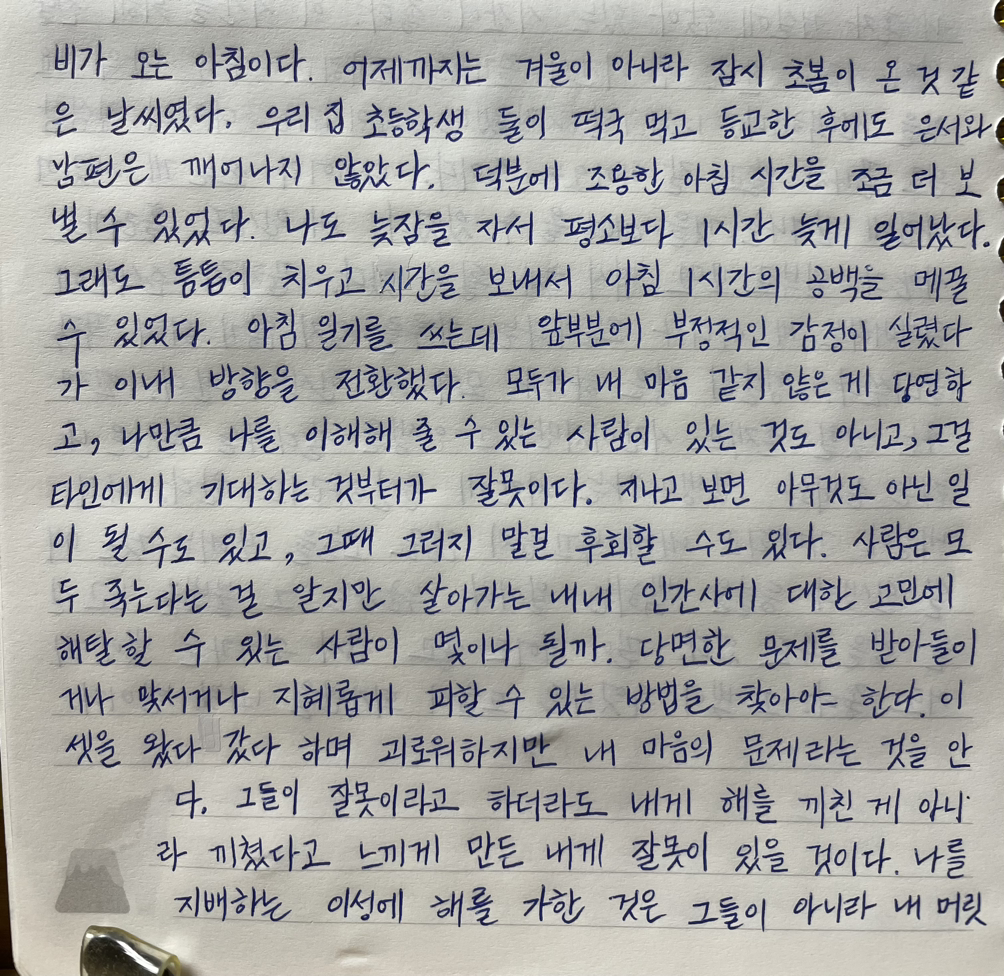 비가 오는 아침이다. 어제까지는 겨울이 아니라 잠시 초봄이 온 것 같
은 날씨였다. 우리 집 초등학생 들이 떡국 먹고 등교한 후에도 은서와
남편은 깨어나지 않았다. 덕분에 조용한 아침 시간을 조금 더 보
낼 수 있었다. 나도 늦잠을 자서 평소보다 1시간 늦게 일어났다.
그래도 틈틈이 치우고 시간을 보내서 아침 1시간의 공백을 메꿀
수 있었다. 아침 일기를 쓰는데 앞부분에 부정적인 감정이 실렸다
가 이내 방향을 전환했다. 모두가 내 마음 같지 않은 게 당연하
고, 나만큼 나를 이해해 줄 수 있는 사람이 있는 것도 아니고, 그걸
타인에게 기대하는 것부터가 잘못이다. 지나고 보면 아무것도 아닌 일
이 될 수도 있고, 그때 그러지 말걸 후회할 수도 있다. 사람은 모
두 죽는다는 걸 알지만 살아가는 내내 인간사에 대한 고민에
해탈할 수 있는 사람이 몇이나 될까. 당면한 문제를 받아들이
거나 맞서거나 지혜롭게 피할 수 있는 방법을 찾아야 한다. 이
셋을 왔다 갔다 하며 괴로워하지만 내 마음의 문제라는 것을 안
다. 그들이 잘못이라고 하더라도 내게 해를 끼친 게 아니
라 끼쳤다고 느끼게 만든 내게 잘못이 있을 것이다. 나를
지배하는 이성에 해를 가한 것은 그들이 아니라 내 머릿